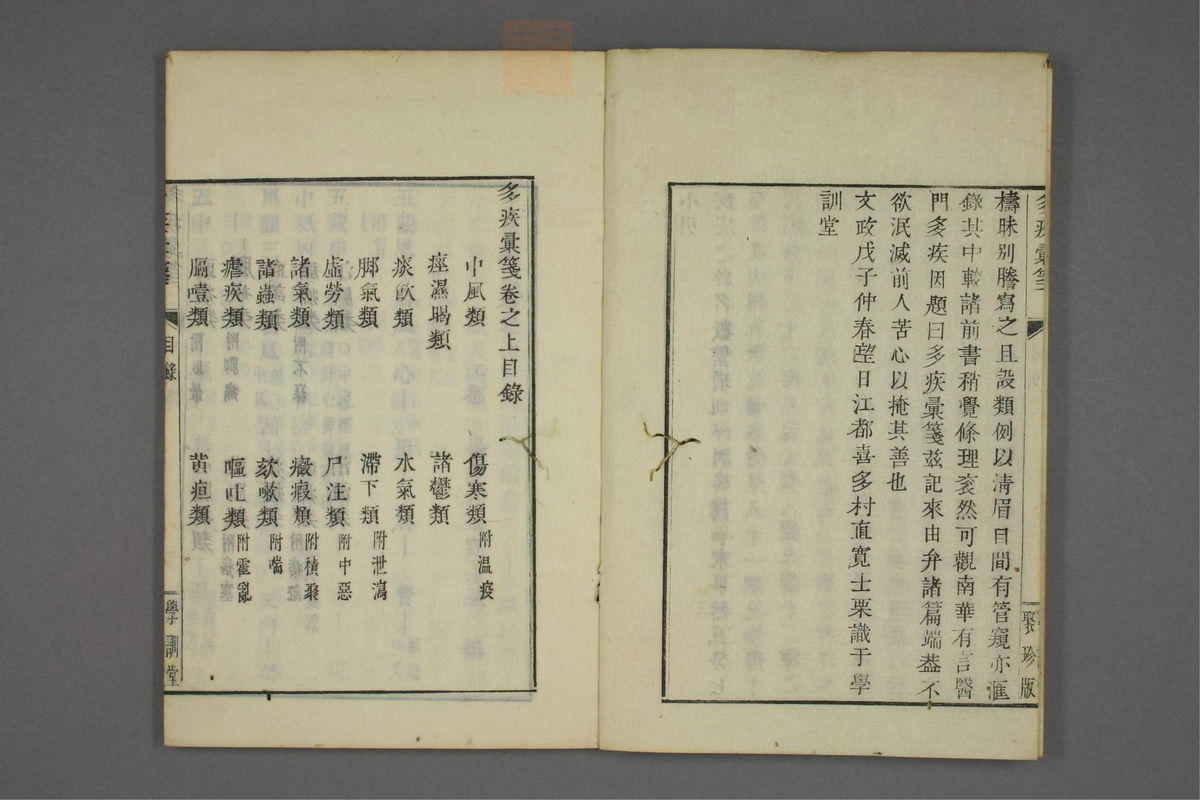 檮昧别謄寫之且設類例以清眉目間有管窺亦滙
錄其中較諸前書稍覺條理衮然可觀南華有言醫
門多疾因題曰多疾彙箋玆記來由弁諸篇端葢不
欲泯滅前人苦心以掩其善也
文政戊子仲春望日江都喜多村直寬士栗識于學
訓堂
多疾彙箋
聚珍版
多疾彙箋卷之上目錄
中風類 傷寒類附温疫
痙濕暍類 諸鬱類
痰飮類 水氣類
脚氣類 滯下類附泄瀉
虛勞類 尸注類附中惡
諸氣類 癥瘕類附積聚
諸蟲類 欬嗽類附喘
瘧疾類 嘔吐類附霍亂
膈噎類 黃疸類
目錄
學訓堂